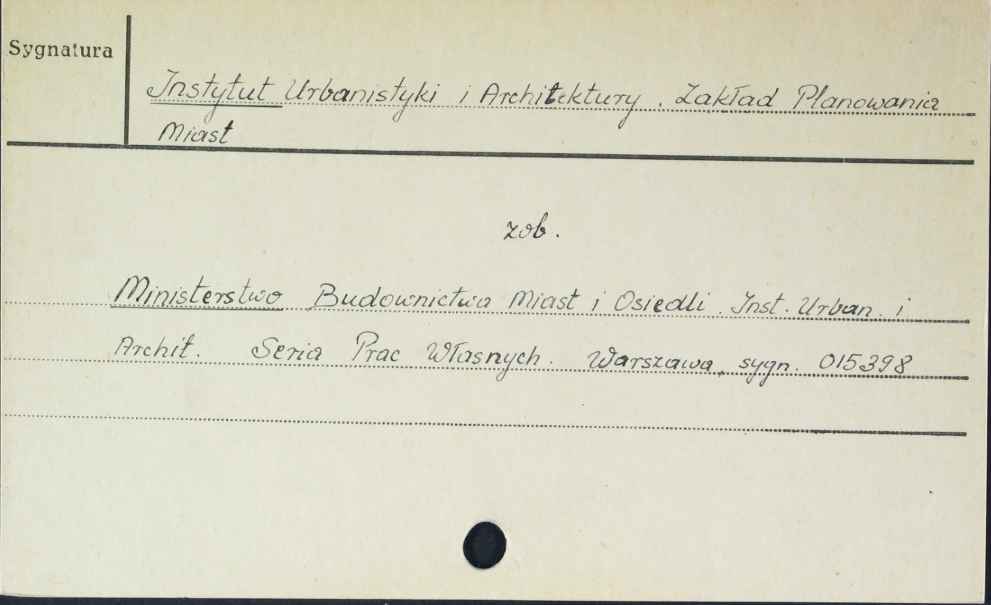 Sygnatura
Instytut Urbanistyki i Architektury. Zakład Planowania
Miast
zob.
Ministerstwo Budownictwa Miast i Osiedli. Inst. Urban. i
Archit. Seria Prac Własnych. Warszawa, sygn. 015398